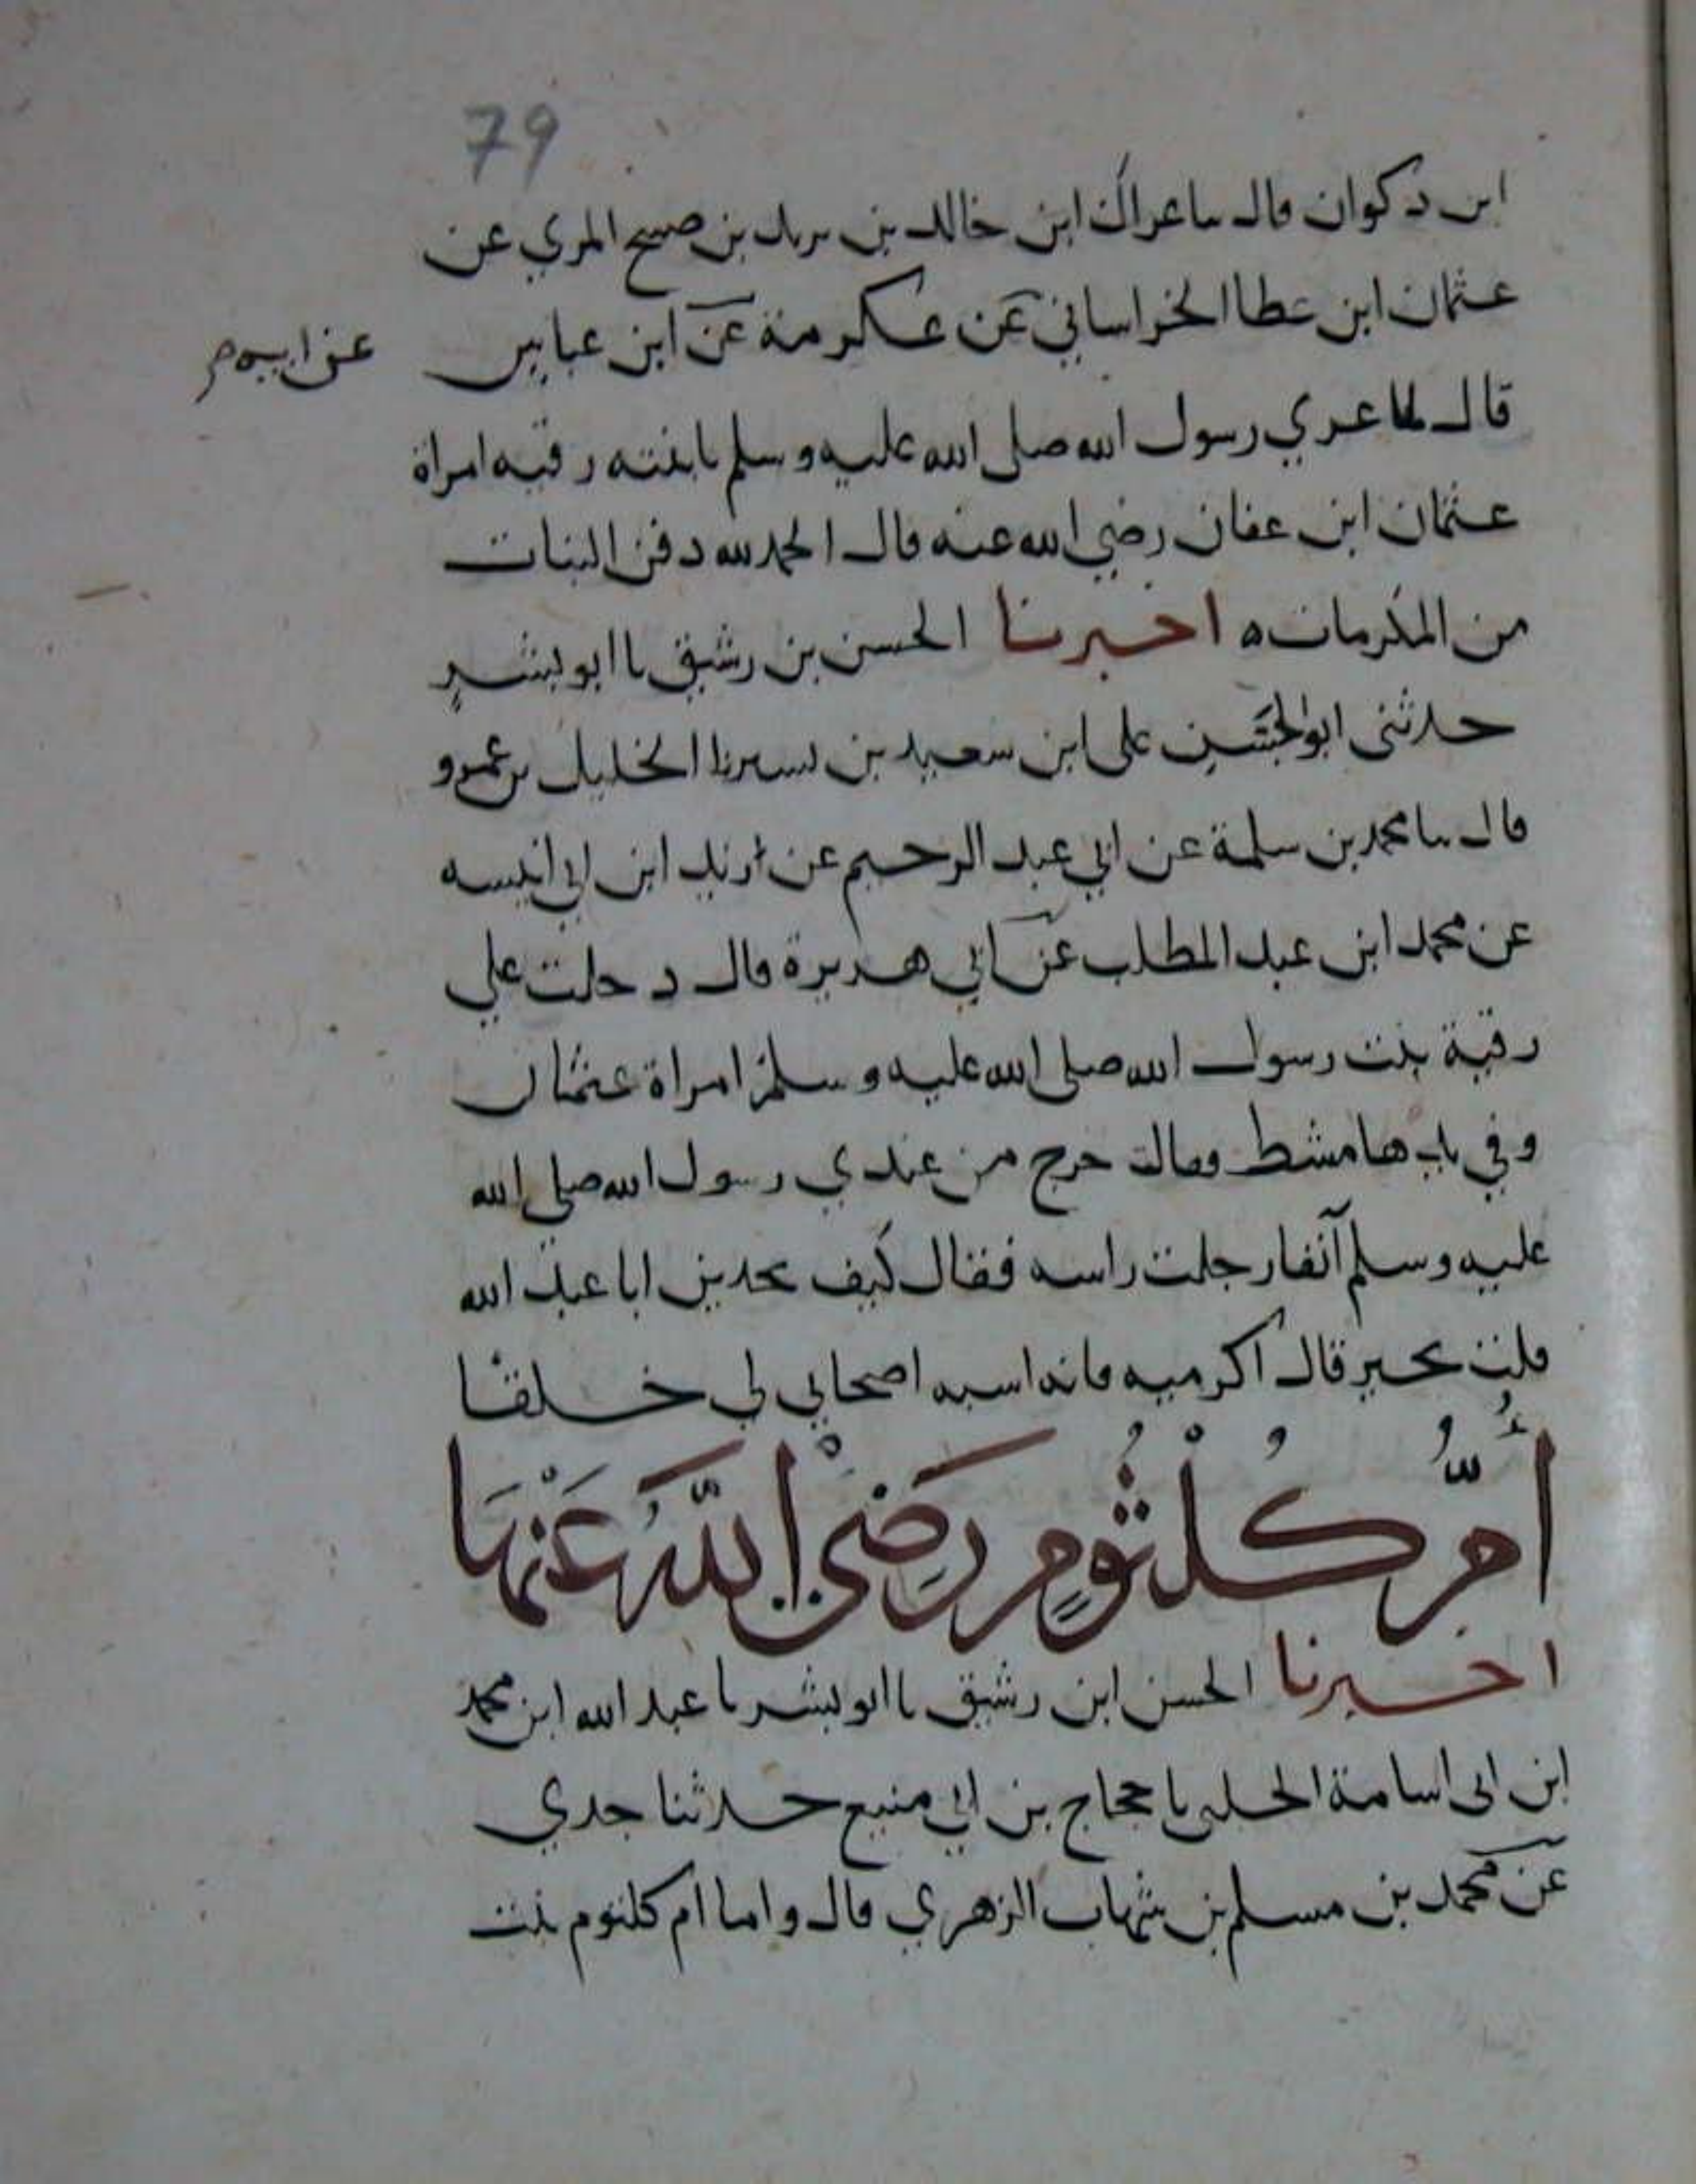 79
ابن ذكوان قال ثنا عراك ابن خالد بن يزيد بن صبيح المري عن
عثمان ابن عطا الخراساني عن عكرمة عن ابن عباس
عن ابيه
قال لما عزي رسول الله صلى الله عليه وسلم بابنته رقيه امراة
عثمان ابن عفان رضي الله عنه قال الحمد لله دفن البنات
من المكرمات ه اخبرنا الحسن بن رشيق نا ابو بشر
حدثنى ابو علي ابن سعيد بن نا الخليل بن عمرو
قال ثنا محمد بن سلمة عن ابي عبد الرحيم عن زيد ابن ابي انيسه
عن محمد ابن عبد المطلب عن ابي هريرة قال دخلت علي
رقية بنت رسول الله صلى الله عليه وسلم امراة عثمان
وفي يدها مشط فقالت خرج من عندي رسول الله صلى الله
عليه وسلم آنفا رجلت راسه فقال كيف تجدين ابا عبد الله
قلت بخير قال اكرميه فانه اشبه اصحابي لي خلقا
أُمُّ كُلْثُومٍ رَضِيَ اللَّهُ عَنْهَا
اخبرنا الحسن ابن رشيق نا ابو بشر نا عبد الله ابن محمد
ابن ابى اسامة الحلبي نا حجاج بن ابي منيع حدثنا جدي
عن محمد بن مسلم بن شهاب الزهري قال واما ام كلثوم بنت